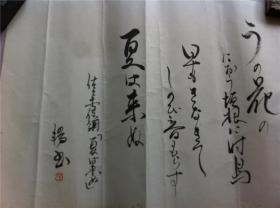 うの花の
にほふ垣根に時鳥
早もきなきて
しのび音もらす
夏は来ぬ
佐々木信綱「夏は来ぬ」